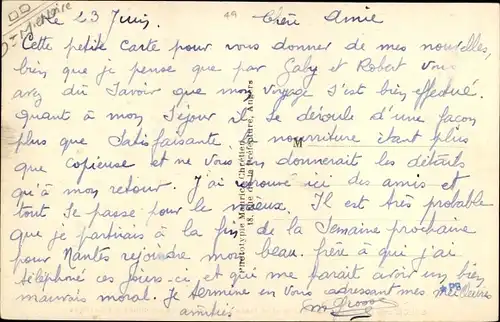 Le 23 Juin. 49 Chère Amie
Cette petite carte pour vous donner de mes nouvelles,
bien que je pense que par Gaby et Robert vous
avez dû savoir que mon voyage s'est bien effectué.
Quant à mon séjour il se déroule d'une façon
plus que satisfaisante, nourriture étant plus
que copieuse et ne vous en donnerait les détails
qu'à mon retour. J'ai retrouvé ici des amis et
tout se passe pour le mieux. Il est très probable
que je partirais à la fin de la semaine prochaine
pour Nantes rejoindre mon beau-frère à qui j'ai
téléphoné ces jours-ci et qui me parait avoir un bien
mauvais moral. Je termine en vous adressant mes meilleures
amitiés
M
Phototypie Maurice Chrétien
18, Rue de la Préfecture, Angers